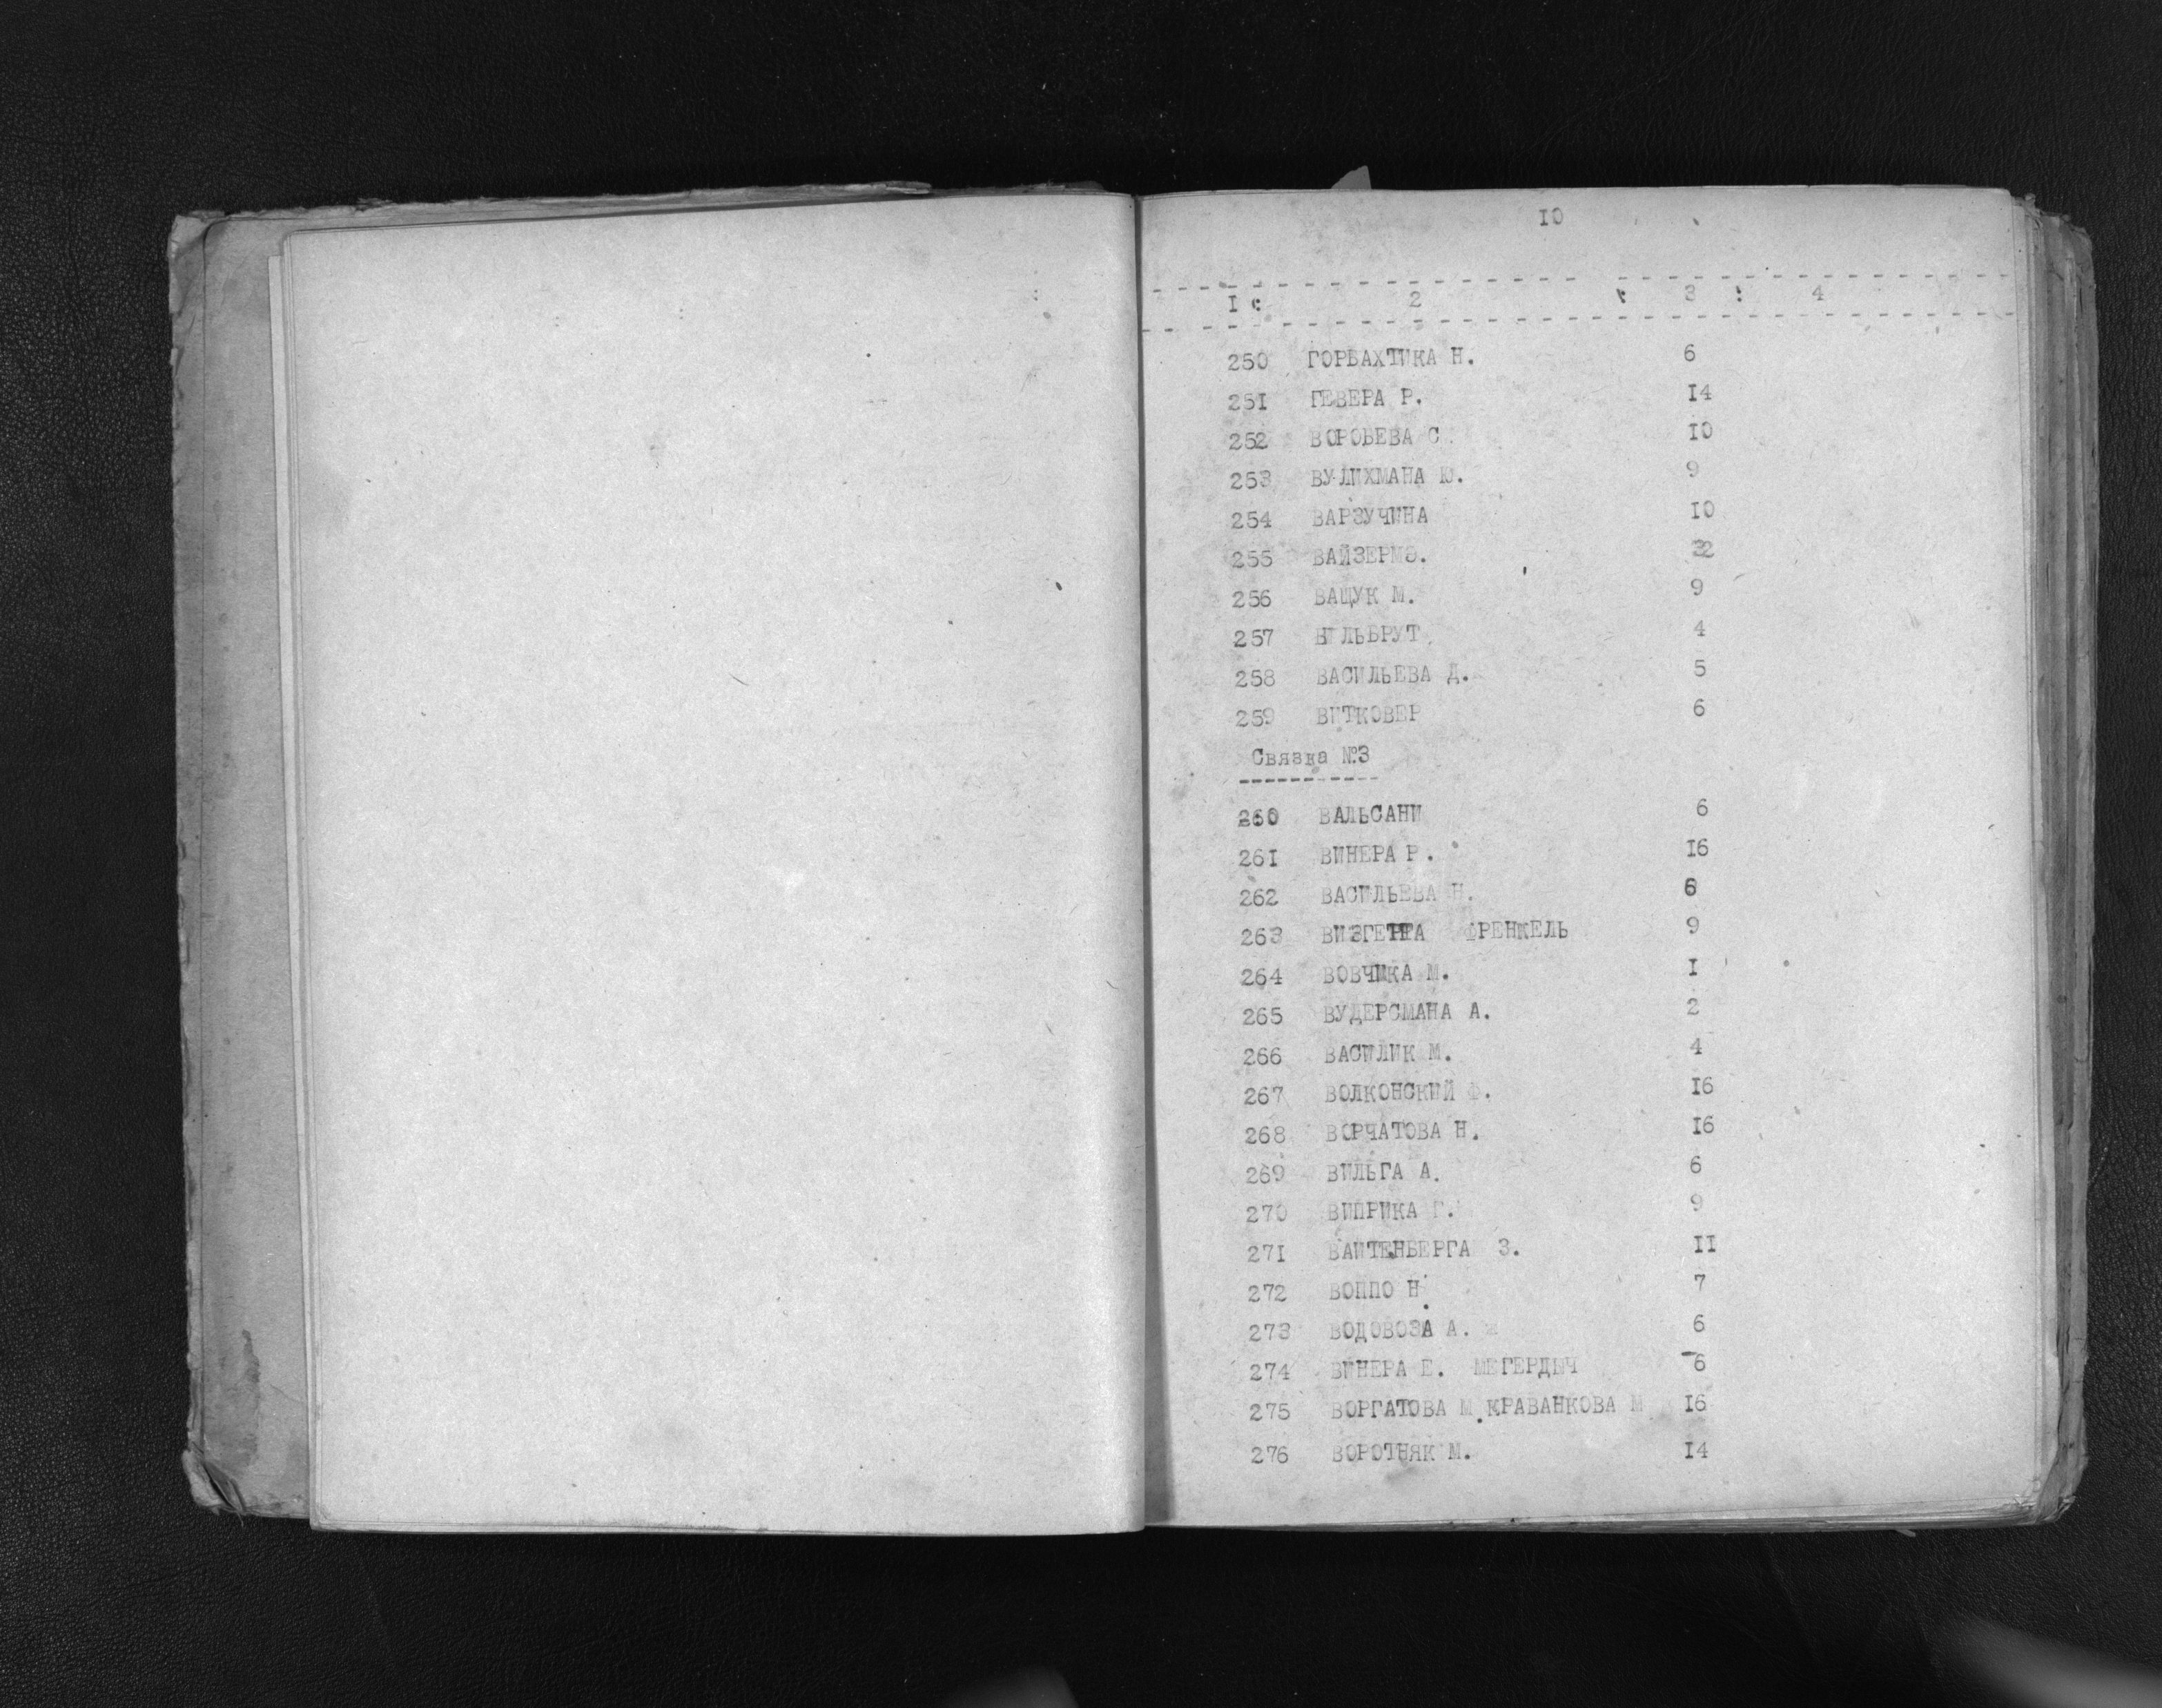 10
I : 2 : 3 : 4
250 ГОРБАХТИКА Н. 6
251 ГЕВЕРА Р. I4
252 ВОРОБЕВА С. I0
253 ВУЛИХМАНА Ю. 9
254 ВАРЗУЧИНА I0
255 32
256 ВАЩУК М. 9
257 4
258 ВАСИЛЬЕВА Д. 5
259 ВИТКОВЕР 6
Связка №3
260 ВАЛЬСАНИ 6
26I ВИНЕРА Р. I6
262 ВАСИЛЬЕВА Н. 6
263 ФРЕНКЕЛЬ 9
264 ВОВЧИКА М. I
265 ВУДЕРСМАНА А. 2
266 ВАСИЛИК М. 4
267 ВОЛКОНСКИЙ Ф. I6
268 ВОРЧАТОВА Н. I6
269 ВИЛЬГА А. 6
270 ВИПРИКА Г. 9
27I ВАЙТЕНБЕРГА З. II
272 ВОППО Н 7
273 ВОДОВОЗА А. 6
274 ВИНЕРА Е. МЕГЕРДЫЧ 6
275 ВОРГАТОВА М.КРАВАНКОВА М I6
276 ВОРОТНЯК М. I4